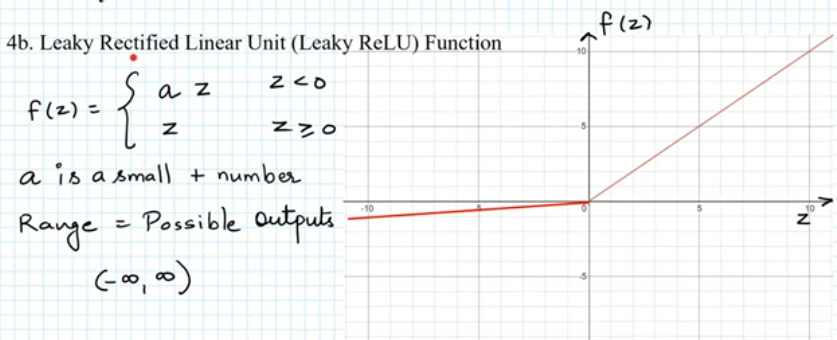 4b. Leaky Rectified Linear Unit (Leaky ReLU) Function
f(z) = { a z z < 0
z z ≥ 0
a is a small + number
Range = Possible outputs
(-∞, ∞)
f(z)
10
5
-10 -5 0 5 10
z
-5